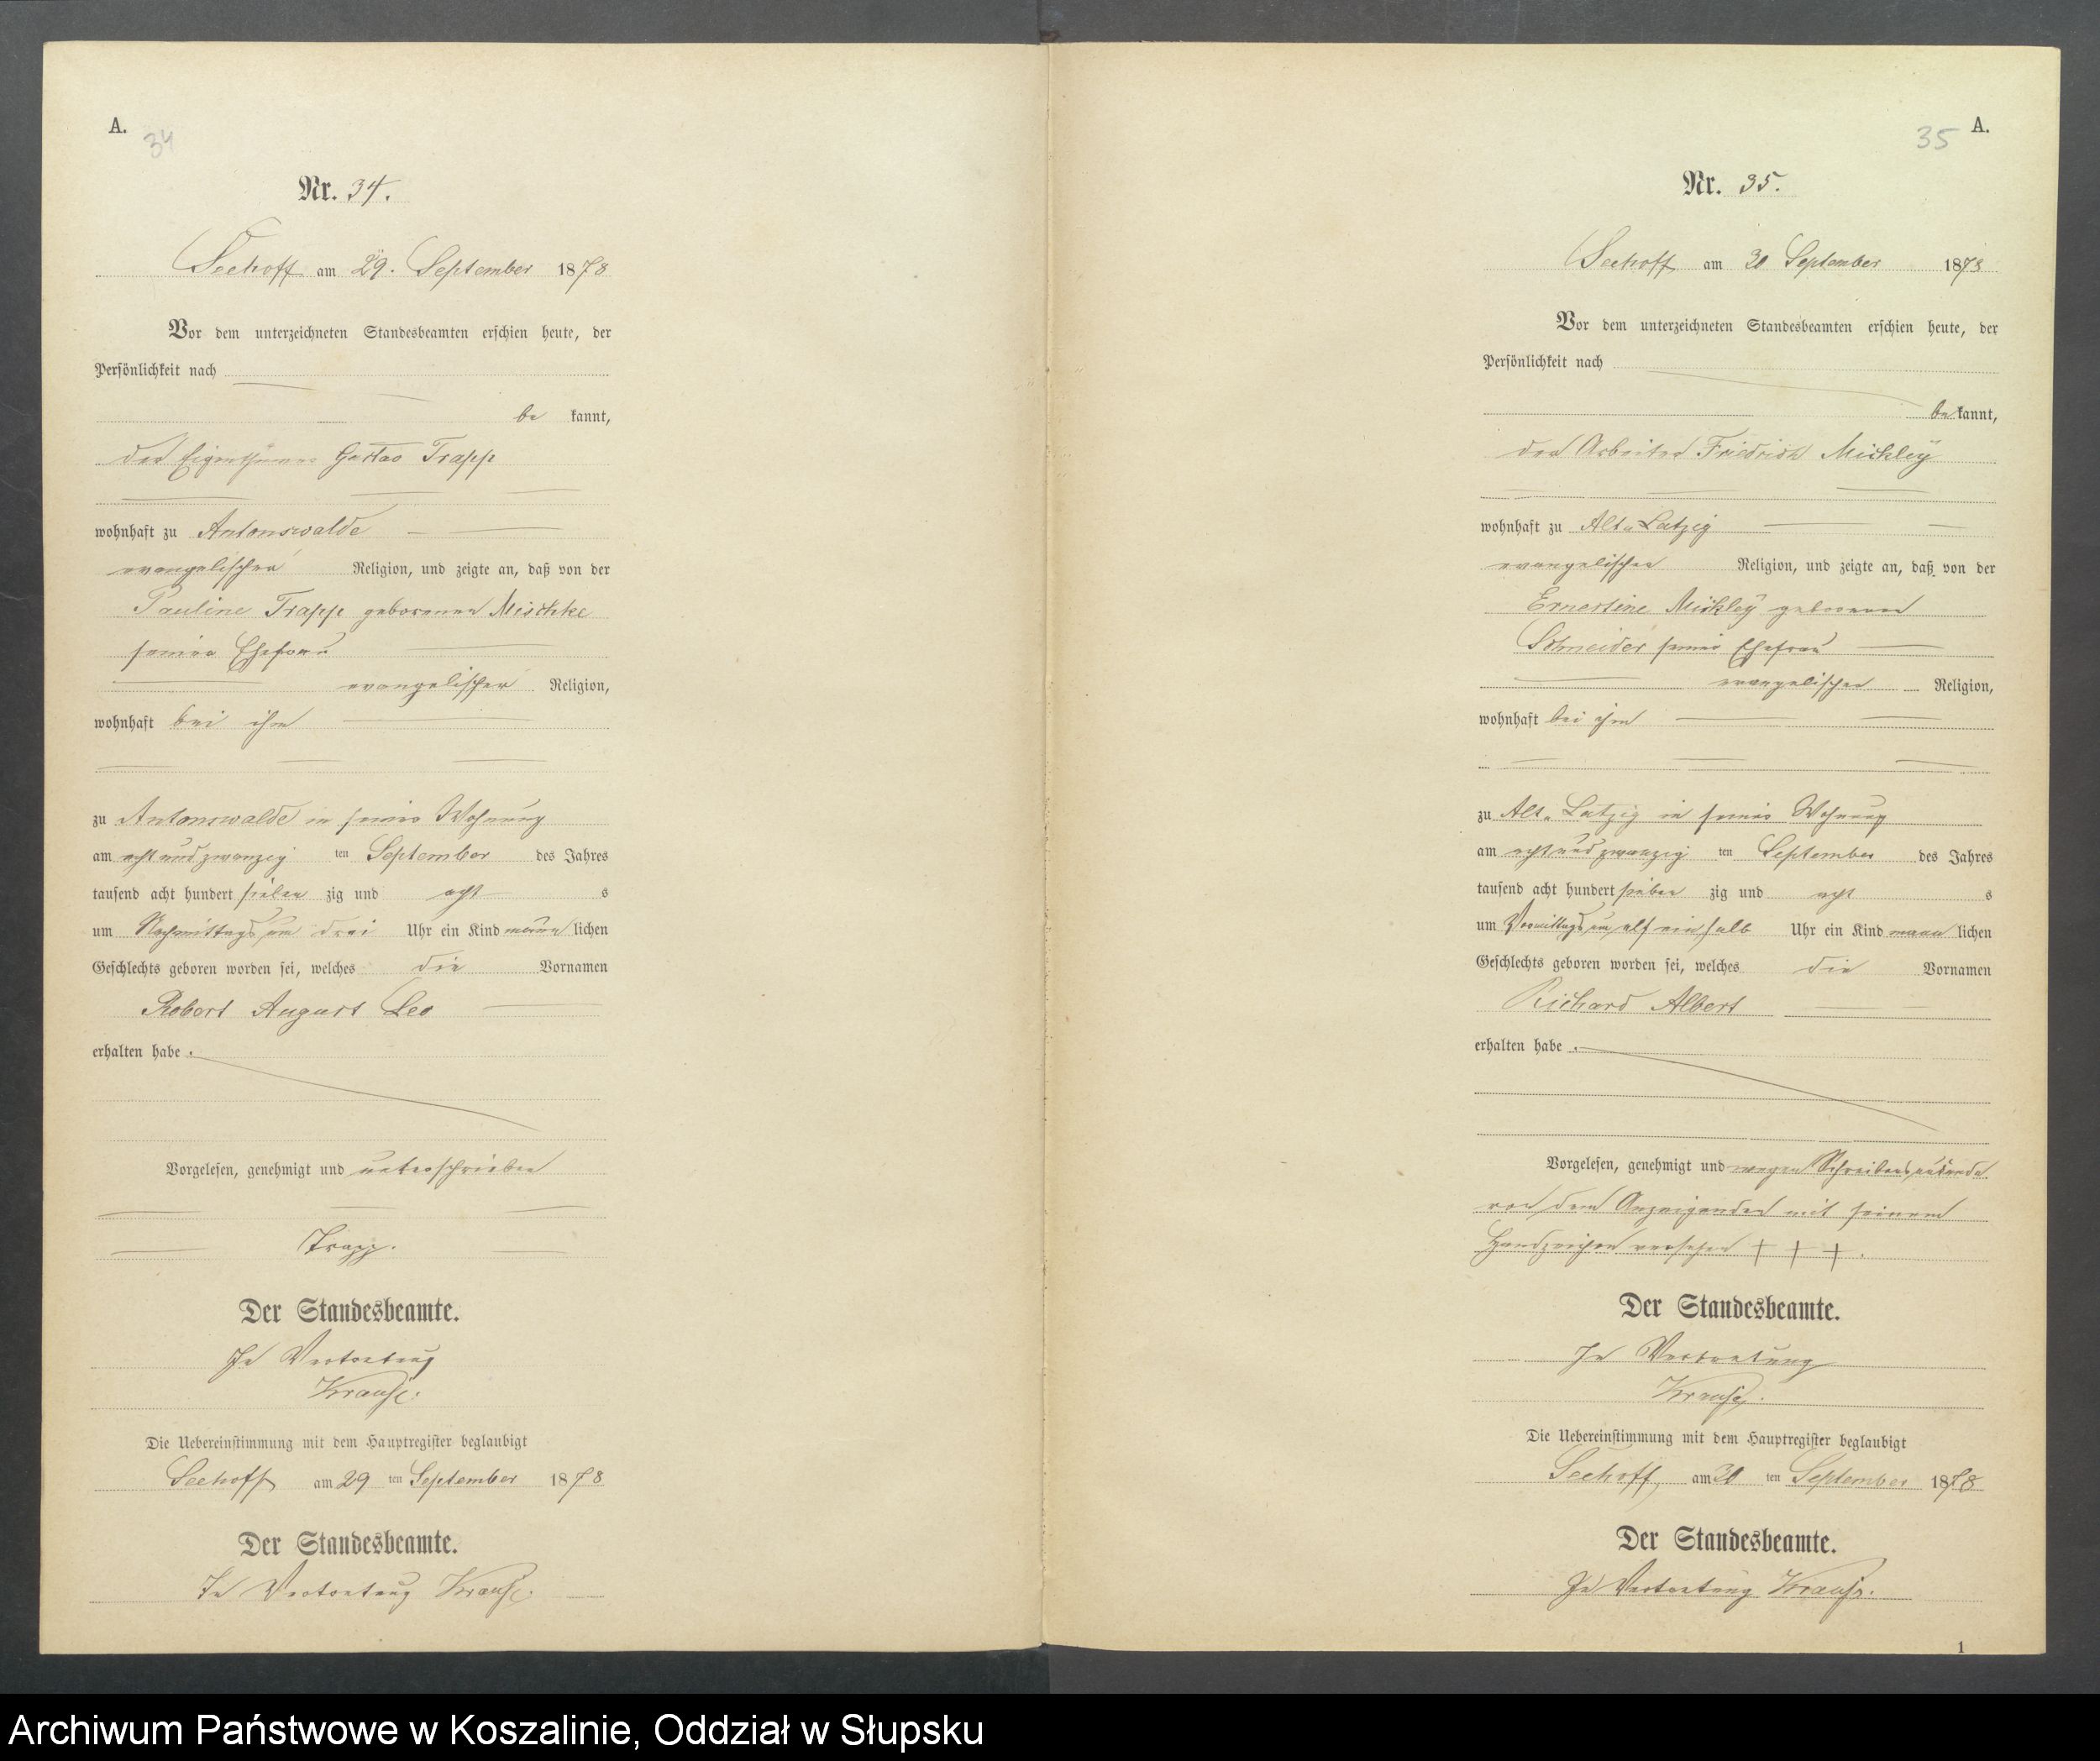 A.
34
Nr. 34.
Seehoff am 29. September 1878
Vor dem unterzeichneten Standesbeamten erschien heute, der
Persönlichkeit nach
be kannt,
der Eigenthümer Gustav Trapp
wohnhaft zu Antonswalde
evangelischer Religion, und zeigte an, daß von der
Pauline Trapp geborenen Mischke
seiner Ehefrau
evangelischer Religion,
wohnhaft bei ihm
zu Antonswalde in seiner Wohnung
am acht und zwanzig ten September des Jahres
tausend acht hundert sieben zig und acht s
um Nachmittags um drei Uhr ein Kind männ lichen
Geschlechts geboren worden sei, welches die Vornamen
Robert August Leo
erhalten habe.
Vorgelesen, genehmigt und unterschrieben
Trapp.
Der Standesbeamte.
In Vertretung
Krause.
Die Uebereinstimmung mit dem Hauptregister beglaubigt
Seehoff am 29 ten September 1878
Der Standesbeamte.
In Vertretung Krause.
35 A.
Nr. 35.
Seehoff am 30 September 1878
Vor dem unterzeichneten Standesbeamten erschien heute, der
Persönlichkeit nach
be kannt,
der Arbeiter Friedrich Mickley
wohnhaft zu Alt-Latzig
evangelischer Religion, und zeigte an, daß von der
Ernestine Mickley geborenen
Schneider seiner Ehefrau
evangelischer Religion,
wohnhaft bei ihm
zu Alt-Latzig in seiner Wohnung
am acht und zwanzig ten September des Jahres
tausend acht hundert sieben zig und acht s
um Vormittags um elf ein halb Uhr ein Kind männ lichen
Geschlechts geboren worden sei, welches die Vornamen
Richard Albert
erhalten habe.
Vorgelesen, genehmigt und wegen Schreibensunkunde
von dem Anzeigenden mit seinem
Handzeichen versehen + + +.
Der Standesbeamte.
In Vertretung
Krause.
Die Uebereinstimmung mit dem Hauptregister beglaubigt
Seehoff am 30 ten September 1878
Der Standesbeamte.
In Vertretung Krause.
1
Archiwum Państwowe w Koszalinie, Oddział w Słupsku